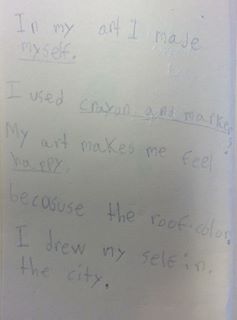 In my art I made
myself.
I used crayon and marker.
My art makes me feel
happy.
becasuse the roof color.
I drew my self in
the city.